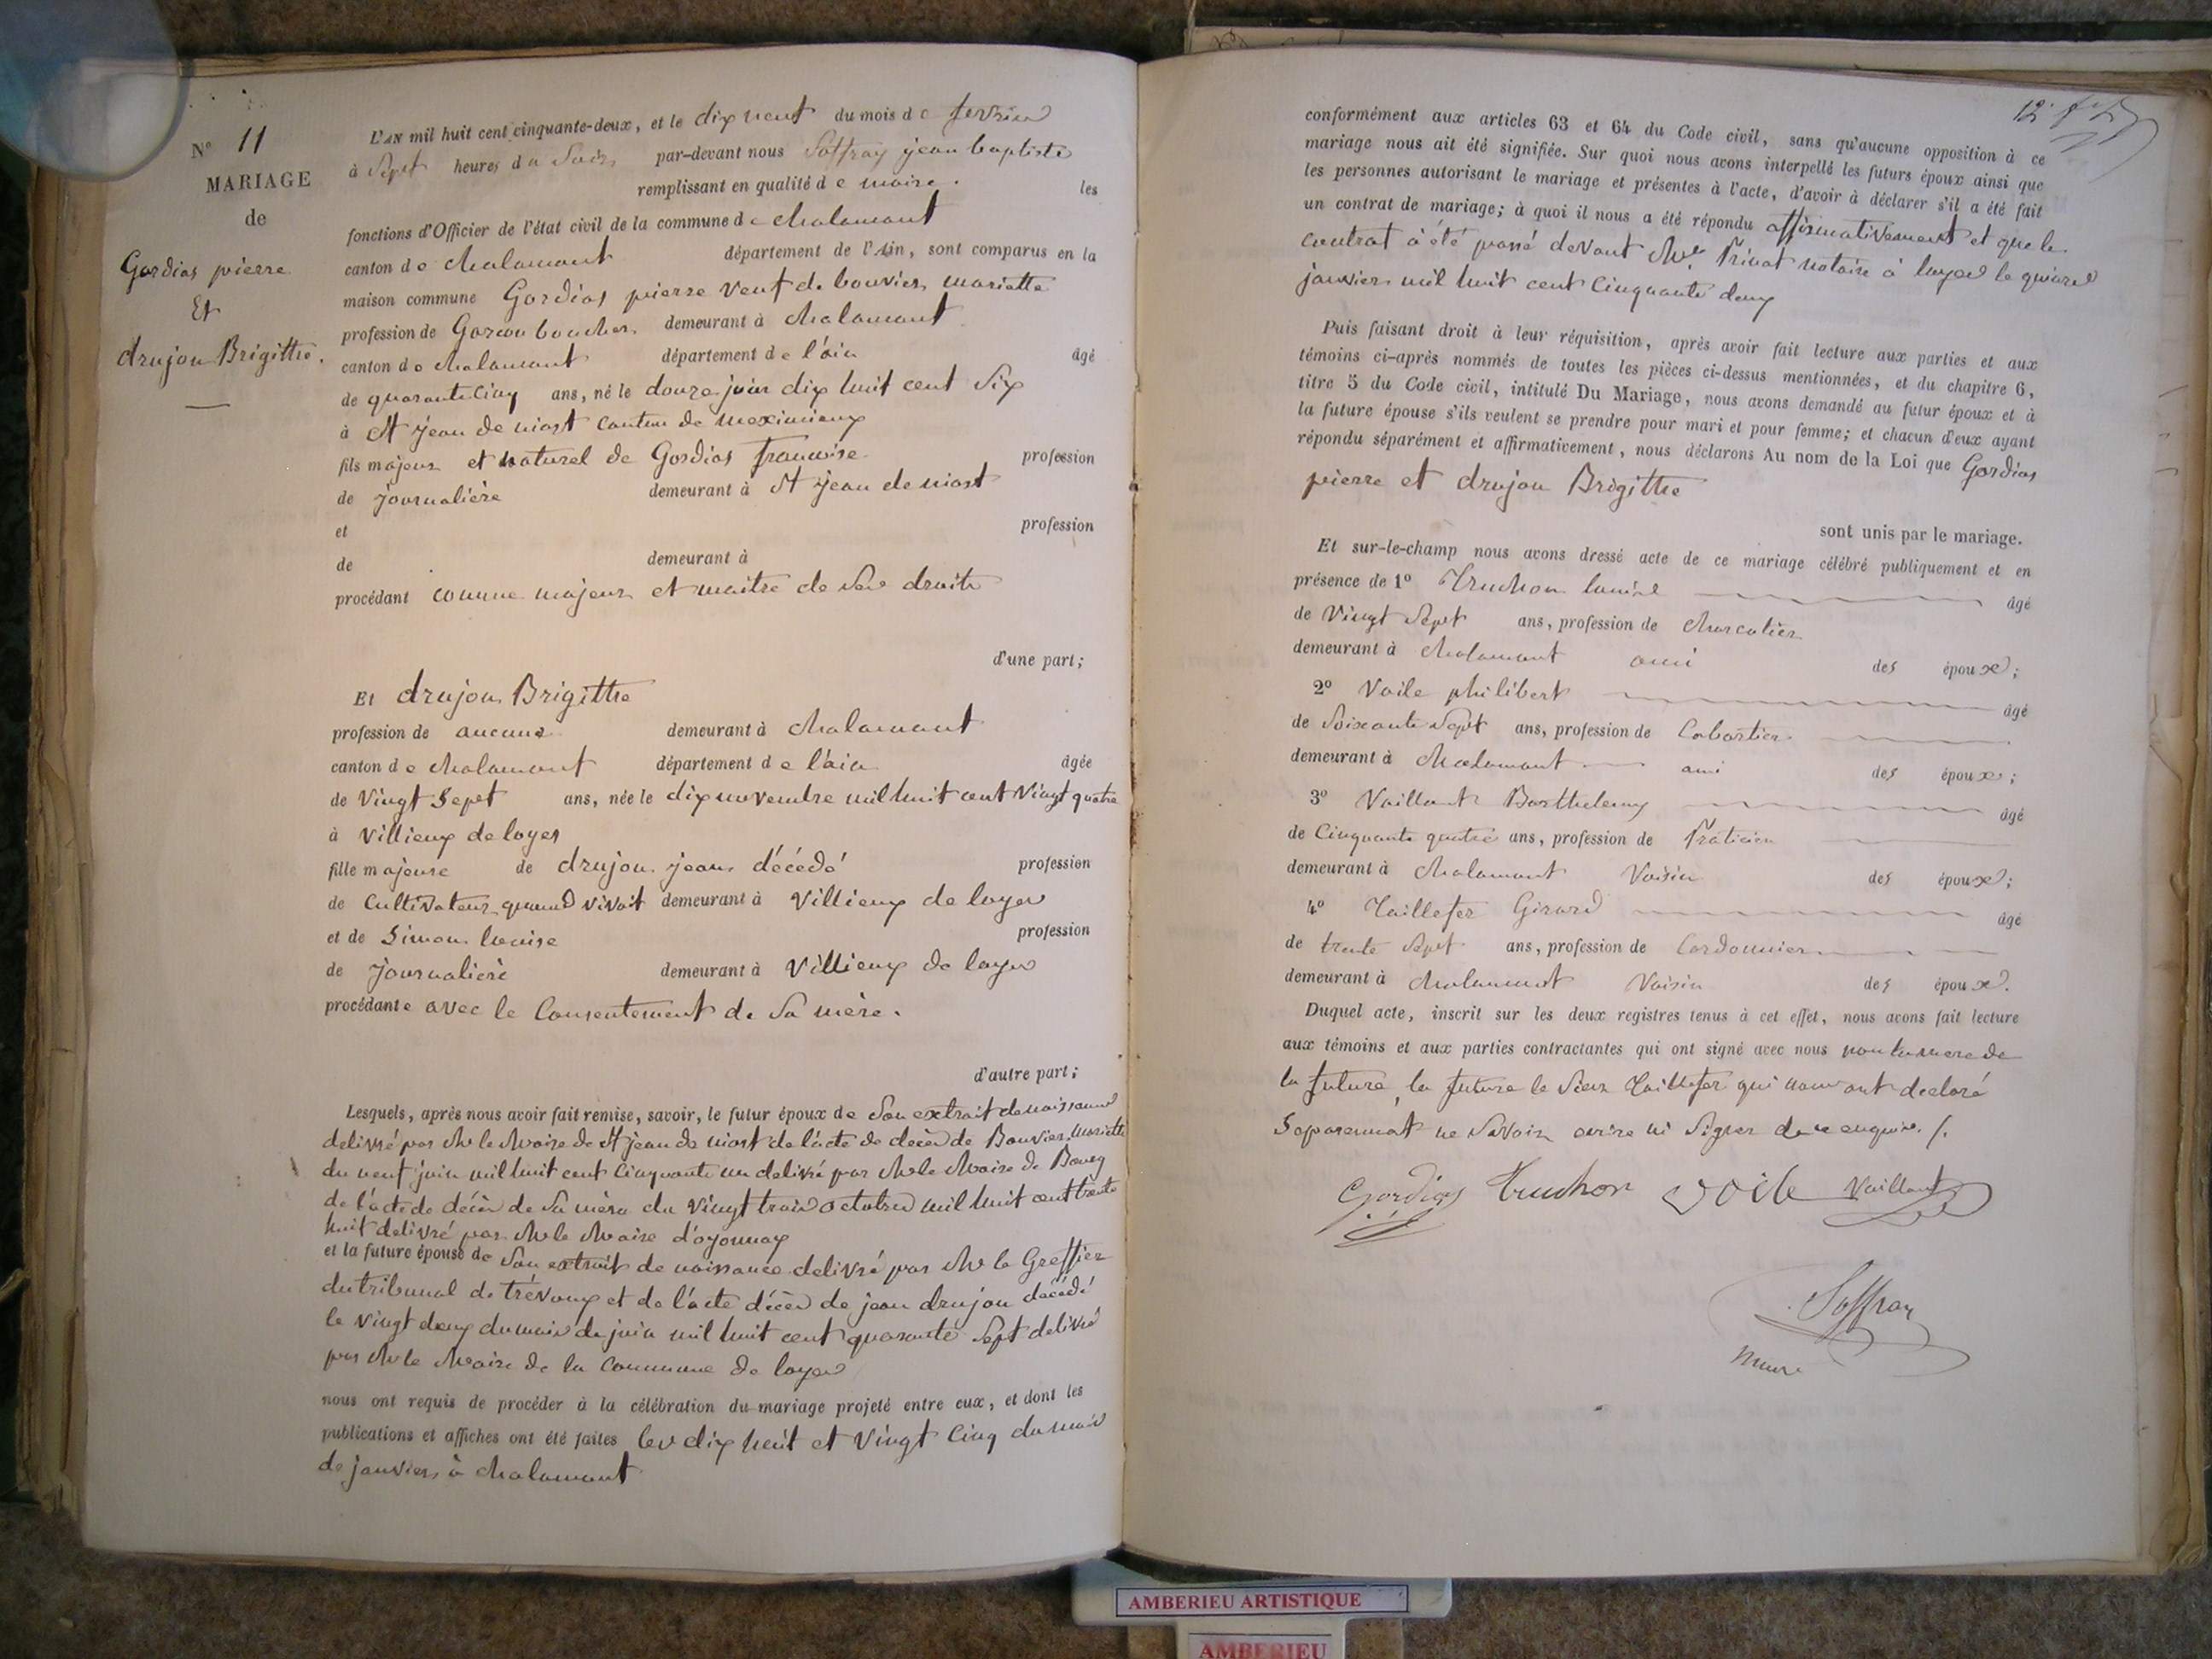 N° 11
MARIAGE
de
Gordias pierre
Et
drujon Brigitte.
L'AN mil huit cent cinquante-deux, et le dix neuf du mois de fevrier
à Sept heures du Soir, par-devant nous Saffray jean baptiste
remplissant en qualité de maire. les
fonctions d'Officier de l'état civil de la commune de chalamont
canton de chalamont département de l'Ain, sont comparus en la
maison commune Gordias pierre veuf de bouvier mariette
profession de Garcon boucher demeurant à chalamont
canton de chalamont département de l'ain âgé
de quarante cinq ans, né le douze juin dix huit cent Six
à St jean de niost canton de meximieux
fils majeur et naturel de Gordias francoise profession
de journalière demeurant à St jean de niost
et profession
de demeurant à
procédant comme majeur et maitre de ses droits
d'une part;
Et drujon Brigitte
profession de aucune demeurant à chalamont
canton de chalamont département de l'ain âgée
de Vingt Sept ans, née le dix novembre mil huit cent Vingt quatre
à Villieux de loyes
fille majeure de drujon jean décédé profession
de Cultivateur quand vivait demeurant à Villieux de loyes
et de Simon louise profession
de journalière demeurant à Villieux de loyes
procédante avec le Consentement de Sa mère.
d'autre part;
Lesquels, après nous avoir fait remise, savoir, le futur époux de Son extrait de naissance
delivré par Mr le Maire de St jean de niost de l'acte de décès de Bouvier Mariette
du neuf juin mil huit cent Cinquante un delivré par Mr le Maire de Bourg
de l'acte de décès de Sa mère du Vingt trois octobre mil huit cent trente
huit delivré par Mr le Maire d'oyonnax
et la future épouse de Son extrait de naissance delivré par Mr le Greffier
du tribunal de trévoux et de l'acte décès de jean drujon décédé
le Vingt deux du mois de juin mil huit cent quarante Sept delivré
par Mr le Maire de la Commune de loyes
nous ont requis de procéder à la célébration du mariage projeté entre eux, et dont les
publications et affiches ont été faites les dix huit et Vingt Cinq du mois
de janvier à chalamont
conformément aux articles 63 et 64 du Code civil, sans qu'aucune opposition à ce
mariage nous ait été signifiée. Sur quoi nous avons interpellé les futurs époux ainsi que
les personnes autorisant le mariage et présentes à l'acte, d'avoir à déclarer s'il a été fait
un contrat de mariage; à quoi il nous a été répondu affirmativement et que le
contrat à été passé devant Me Privat notaire à loyes le quinze
janvier mil huit cent Cinquante deux
Puis faisant droit à leur réquisition, après avoir fait lecture aux parties et aux
témoins ci-après nommés de toutes les pièces ci-dessus mentionnées, et du chapitre 6,
titre 5 du Code civil, intitulé Du Mariage, nous avons demandé au futur époux et à
la future épouse s'ils veulent se prendre pour mari et pour femme; et chacun d'eux ayant
répondu séparément et affirmativement, nous déclarons Au nom de la Loi que Gordias
pierre et drujon Brigitte
sont unis par le mariage.
Et sur-le-champ nous avons dressé acte de ce mariage célébré publiquement et en
présence de 1° Truchon âgé
de Vingt Sept ans, profession de charcutier
demeurant à chalamont ami des époux;
2° Voile philibert âgé
de Soixante Sept ans, profession de Cabartier
demeurant à chalamont ami des époux;
3° Vaillant Barthelemy âgé
de Cinquante quatre ans, profession de Praticien
demeurant à chalamont Voisin des époux;
4° Taillefer Girard âgé
de trente Sept ans, profession de Cordonnier
demeurant à chalamont Voisin des époux.
Duquel acte, inscrit sur les deux registres tenus à cet effet, nous avons fait lecture
aux témoins et aux parties contractantes qui ont signé avec nous non la mere de
la future, la future le Sieur Taillefer qui nous ont declaré
Separement ne Savoir ecrire ni Signer de ce enquis ./.
Gordias Truchon Voile Vaillant
Saffray
Maire
AMBERIEU ARTISTIQUE
AMBERIEU